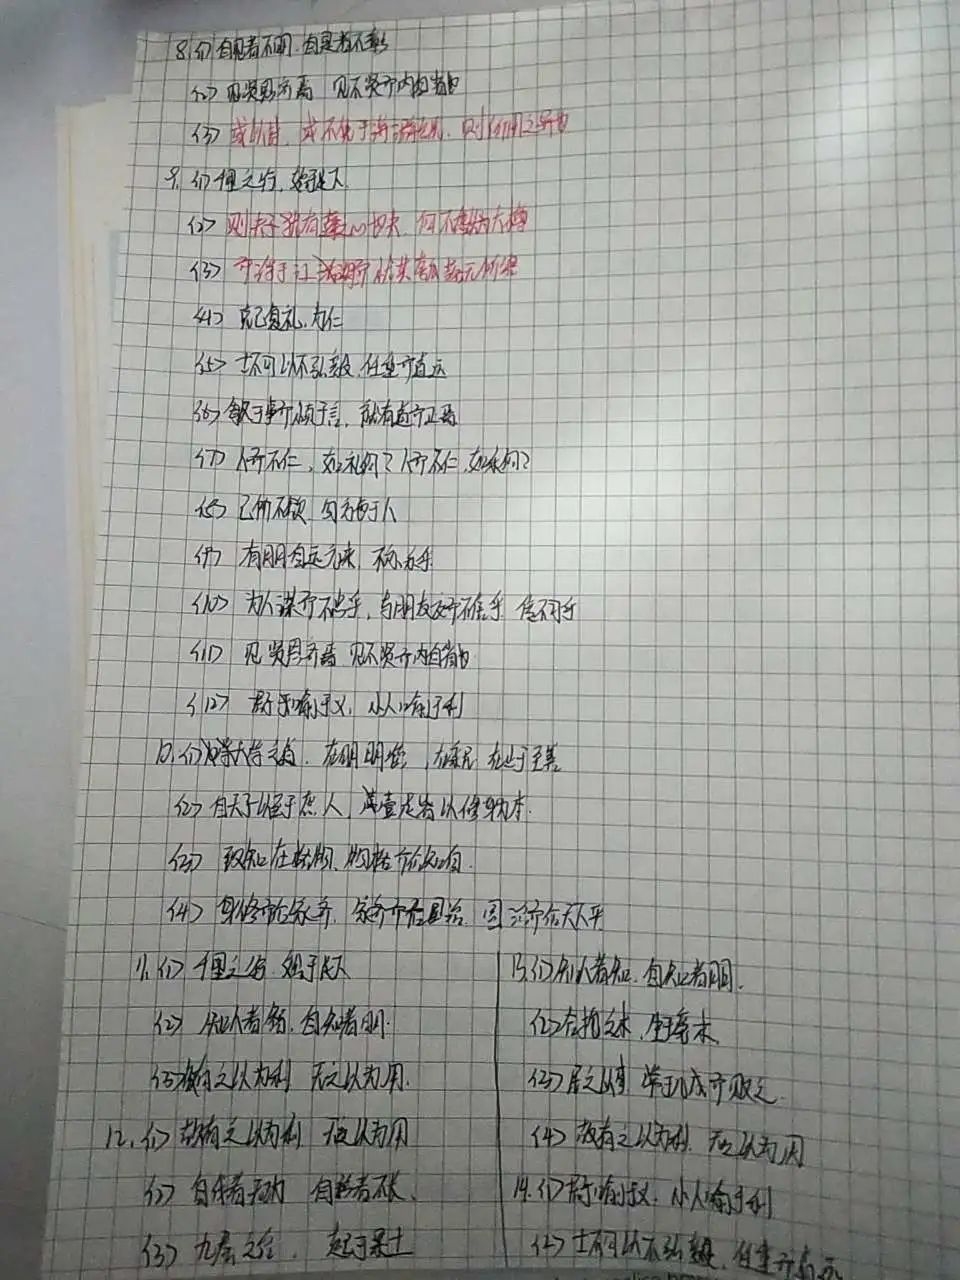 8.(1) 自见者不明.自是者不彰
(2) 见贤思齐焉 见不贤而内自省也
(3) 或以封,或不免于洴澼絖,则所用之异也
9.(1) 千里之行,始于足下
(2) 则夫子犹有蓬之心也夫,何不虑以为大樽
(3) 而浮于江湖 忧其瓠落无所容
(4) 克己复礼.为仁
(5) 士不可以不弘毅.任重而道远
(6) 敏于事而慎于言,就有道而正焉
(7) 人而不仁,如礼何?人而不仁,如乐何?
(8) 己所不欲 勿施于人
(9) 有朋自远方来,不亦乐乎
(10) 为人谋而不忠乎,与朋友交而不信乎 传不习乎
(11) 见贤思齐焉 见不贤而内自省也
(12) 君子喻于义,小人喻于利
10.(1) 大学之道.在明明德,在亲民 在止于至善
(2) 自天子以至于庶人,壹是皆以修身为本.
(3) 致知在格物.物格而后知至.
(4) 身修而后家齐.家齐而后国治.国治而后天下平
11.(1) 千里之行.始于足下
(2) 知人者智.自知者明.
(3) 故有之以为利 无之以为用.
12.(1) 故有之以为利 无之以为用
(2) 自伐者无功 自矜者不长.
(3) 九层之台,起于累土
13.(1) 知人者智,自知者明.
(2) 合抱之木,生于毫末
(3) 民之从事 常于几成而败之.
(4) 故有之以为利.无之以为用
14.(1) 君子喻于义.小人喻于利
(2) 士不可以不弘毅,任重而道远